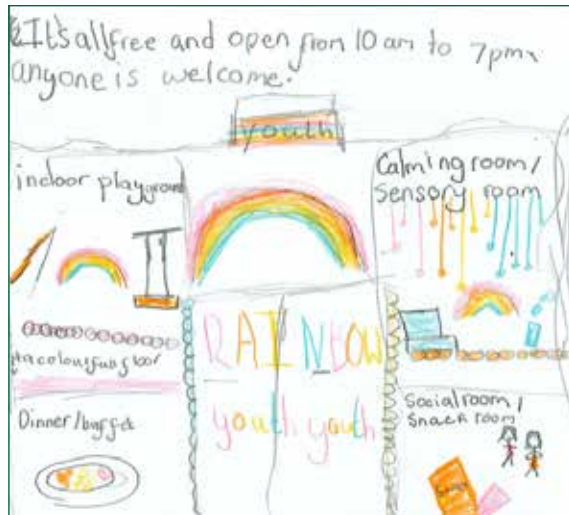 It's all free and open from 10 am to 7pm
anyone is welcome.
youth
indoor playground
Calming room /
Sensory room
RAINBOW
youth youth
Dinner/buffet
Social room /
Snack room